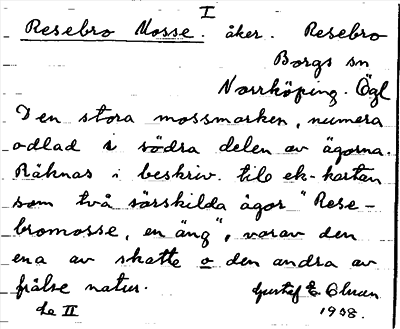 I
Resebro Mosse. åker. Resebro
Borgs sn
Norrköping. Ögl
Den stora mossmarken, numera
odlad i södra delen av ägorna.
Räknas i beskriv. till ek-kartan
som två särskilda ägor "Rese-
bromosse, en äng", varav den
ena av skatte o den andra av
frälse natur. Gustaf E. Olsson
se II 1938.